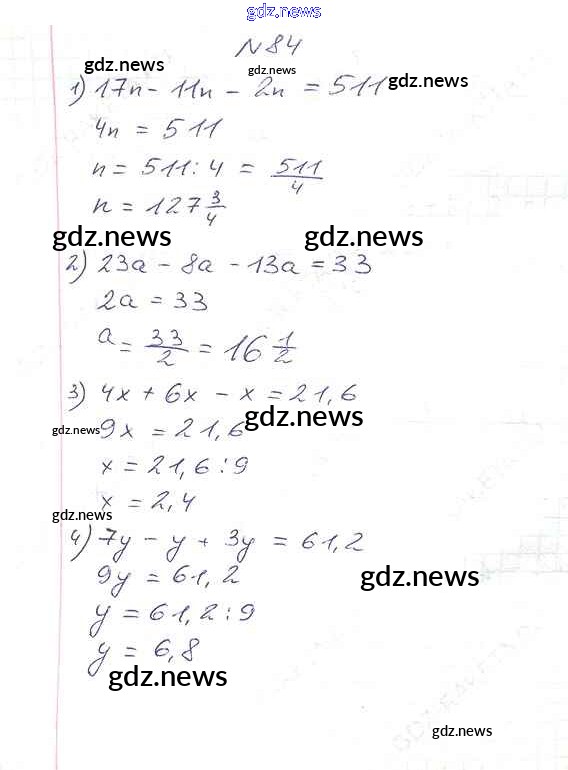 gdz.news
N84
gdz.news
gdz.news
1) 17n - 11n - 2n = 511
gdz.news
4n = 511
n = 511 : 4 = 511/4
n = 127 3/4
gdz.news gdz.news
2) 23a - 8a - 13a = 33
2a = 33
a = 33/2 = 16 1/2
3) 4x + 6x - x = 21,6
gdz.news
gdz.news
9x = 21,6
x = 21,6 : 9
x = 2,4
gdz.news
4) 7y - y + 3y = 61,2
9y = 61,2
gdz.news
y = 61,2 : 9
y = 6,8
gdz.news
gdz.news